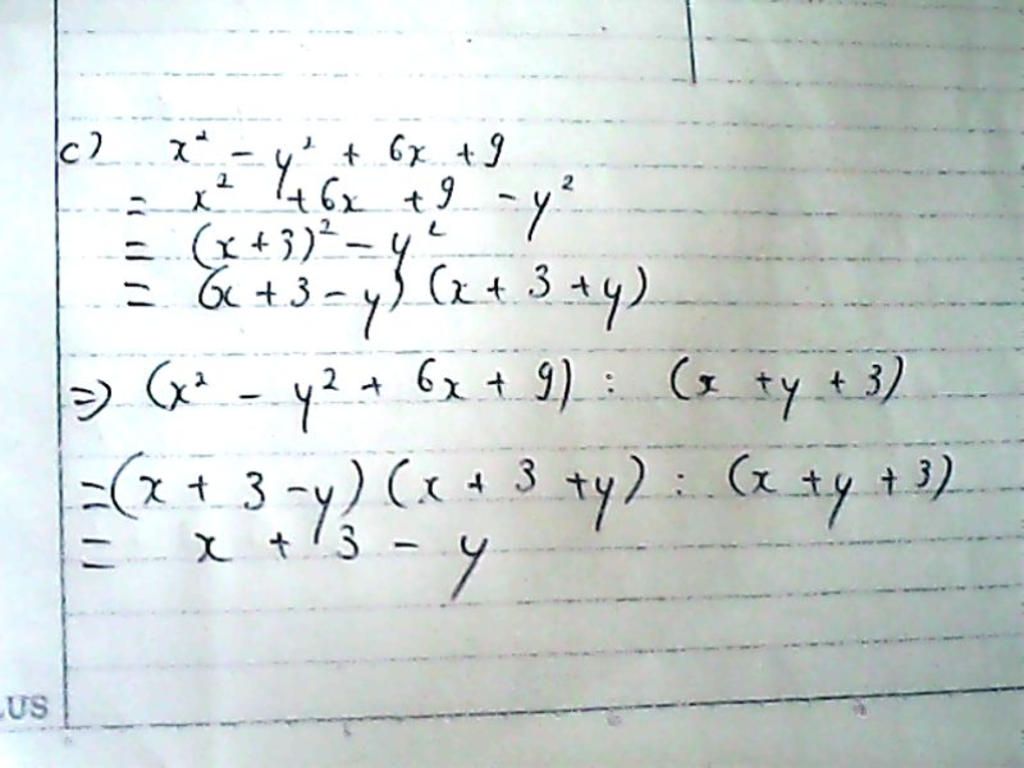 c) x² - y² + 6x + 9
= x² + 6x + 9 - y²
= (x + 3)² - y²
= (x + 3 - y) (x + 3 + y)
=> (x² - y² + 6x + 9) : (x + y + 3)
= (x + 3 - y) (x + 3 + y) : (x + y + 3)
= x + 3 - y
US